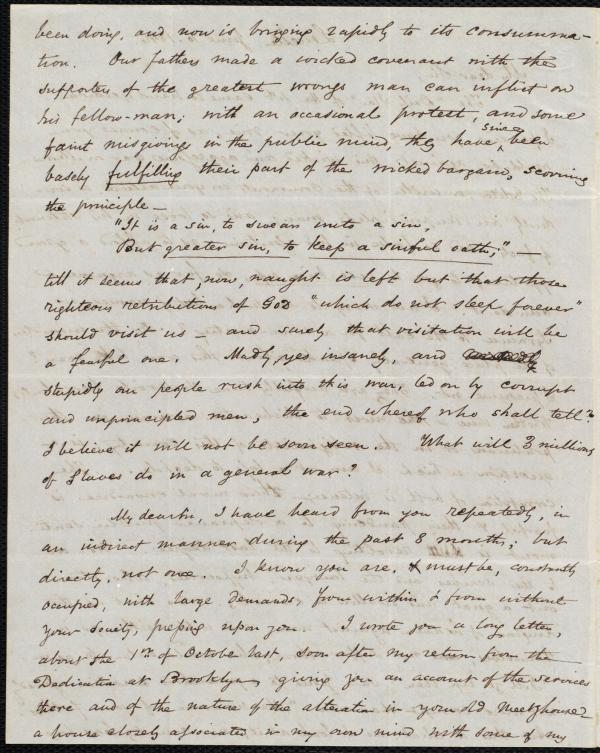 been doing, and now is bringing rapidly to its consumma-
tion. Our fathers made a wicked covenant with the
supporters of the greatest wrongs man can inflict on
his fellow-man; with an occasional protest, and some
faint misgivings in the public mind, they have since been
basely fulfilling their part of the wicked bargain, scorning
the principle —
"It is a sin, to swear unto a sin,
But greater sin, to keep a sinful oath;" —
till it seems that, now, naught is left but that those
righteous retributions of God "which do not sleep forever"
should visit us — and surely that visitation will be
a fearful one. Madly, yes insanely, and
stupidly our people rush into this war, led on by corrupt
and unprincipled men, the end whereof who shall tell?
I believe it will not be soon seen. What will 3 millions
of Slaves do in a general war?
My dear Sir, I have heard from you repeatedly, in
an indirect manner during the past 8 months; but
directly, not once. I know you are, & must be, constantly
occupied, with large demands, from within & from without
your Society, pressing upon you. I wrote you a long letter,
about the 1st of October last, soon after my return from the
Dedication at Brooklyn, giving you an account of the services
there and of the nature of the alteration in your old meetghouse —
a house closely associated in my own mind with some of my